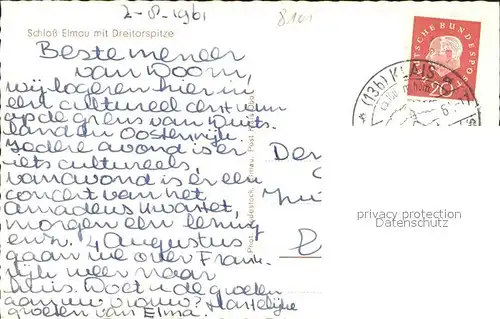 2-8-1961
8101
Schloß Elmau mit Dreitorspitze
DEUTSCHE BUNDESPOST
20
(13b) KLAIS
Beste meneer
van Doorn,
wij logeren hier in
een cultureel centrum
op de grens van Duits-
land en Oostenrijk.
Iedere avond is er
iets cultureels,
vanavond is er een
concert van het
Amadeus kwartet,
morgen een lezing
enz. 4 Augustus
gaan we over Frank-
rijk weer naar
huis. Doet u de groeten
aan uw vrouw? Hartelijke
groeten van Elma.
privacy protection
Datenschutz